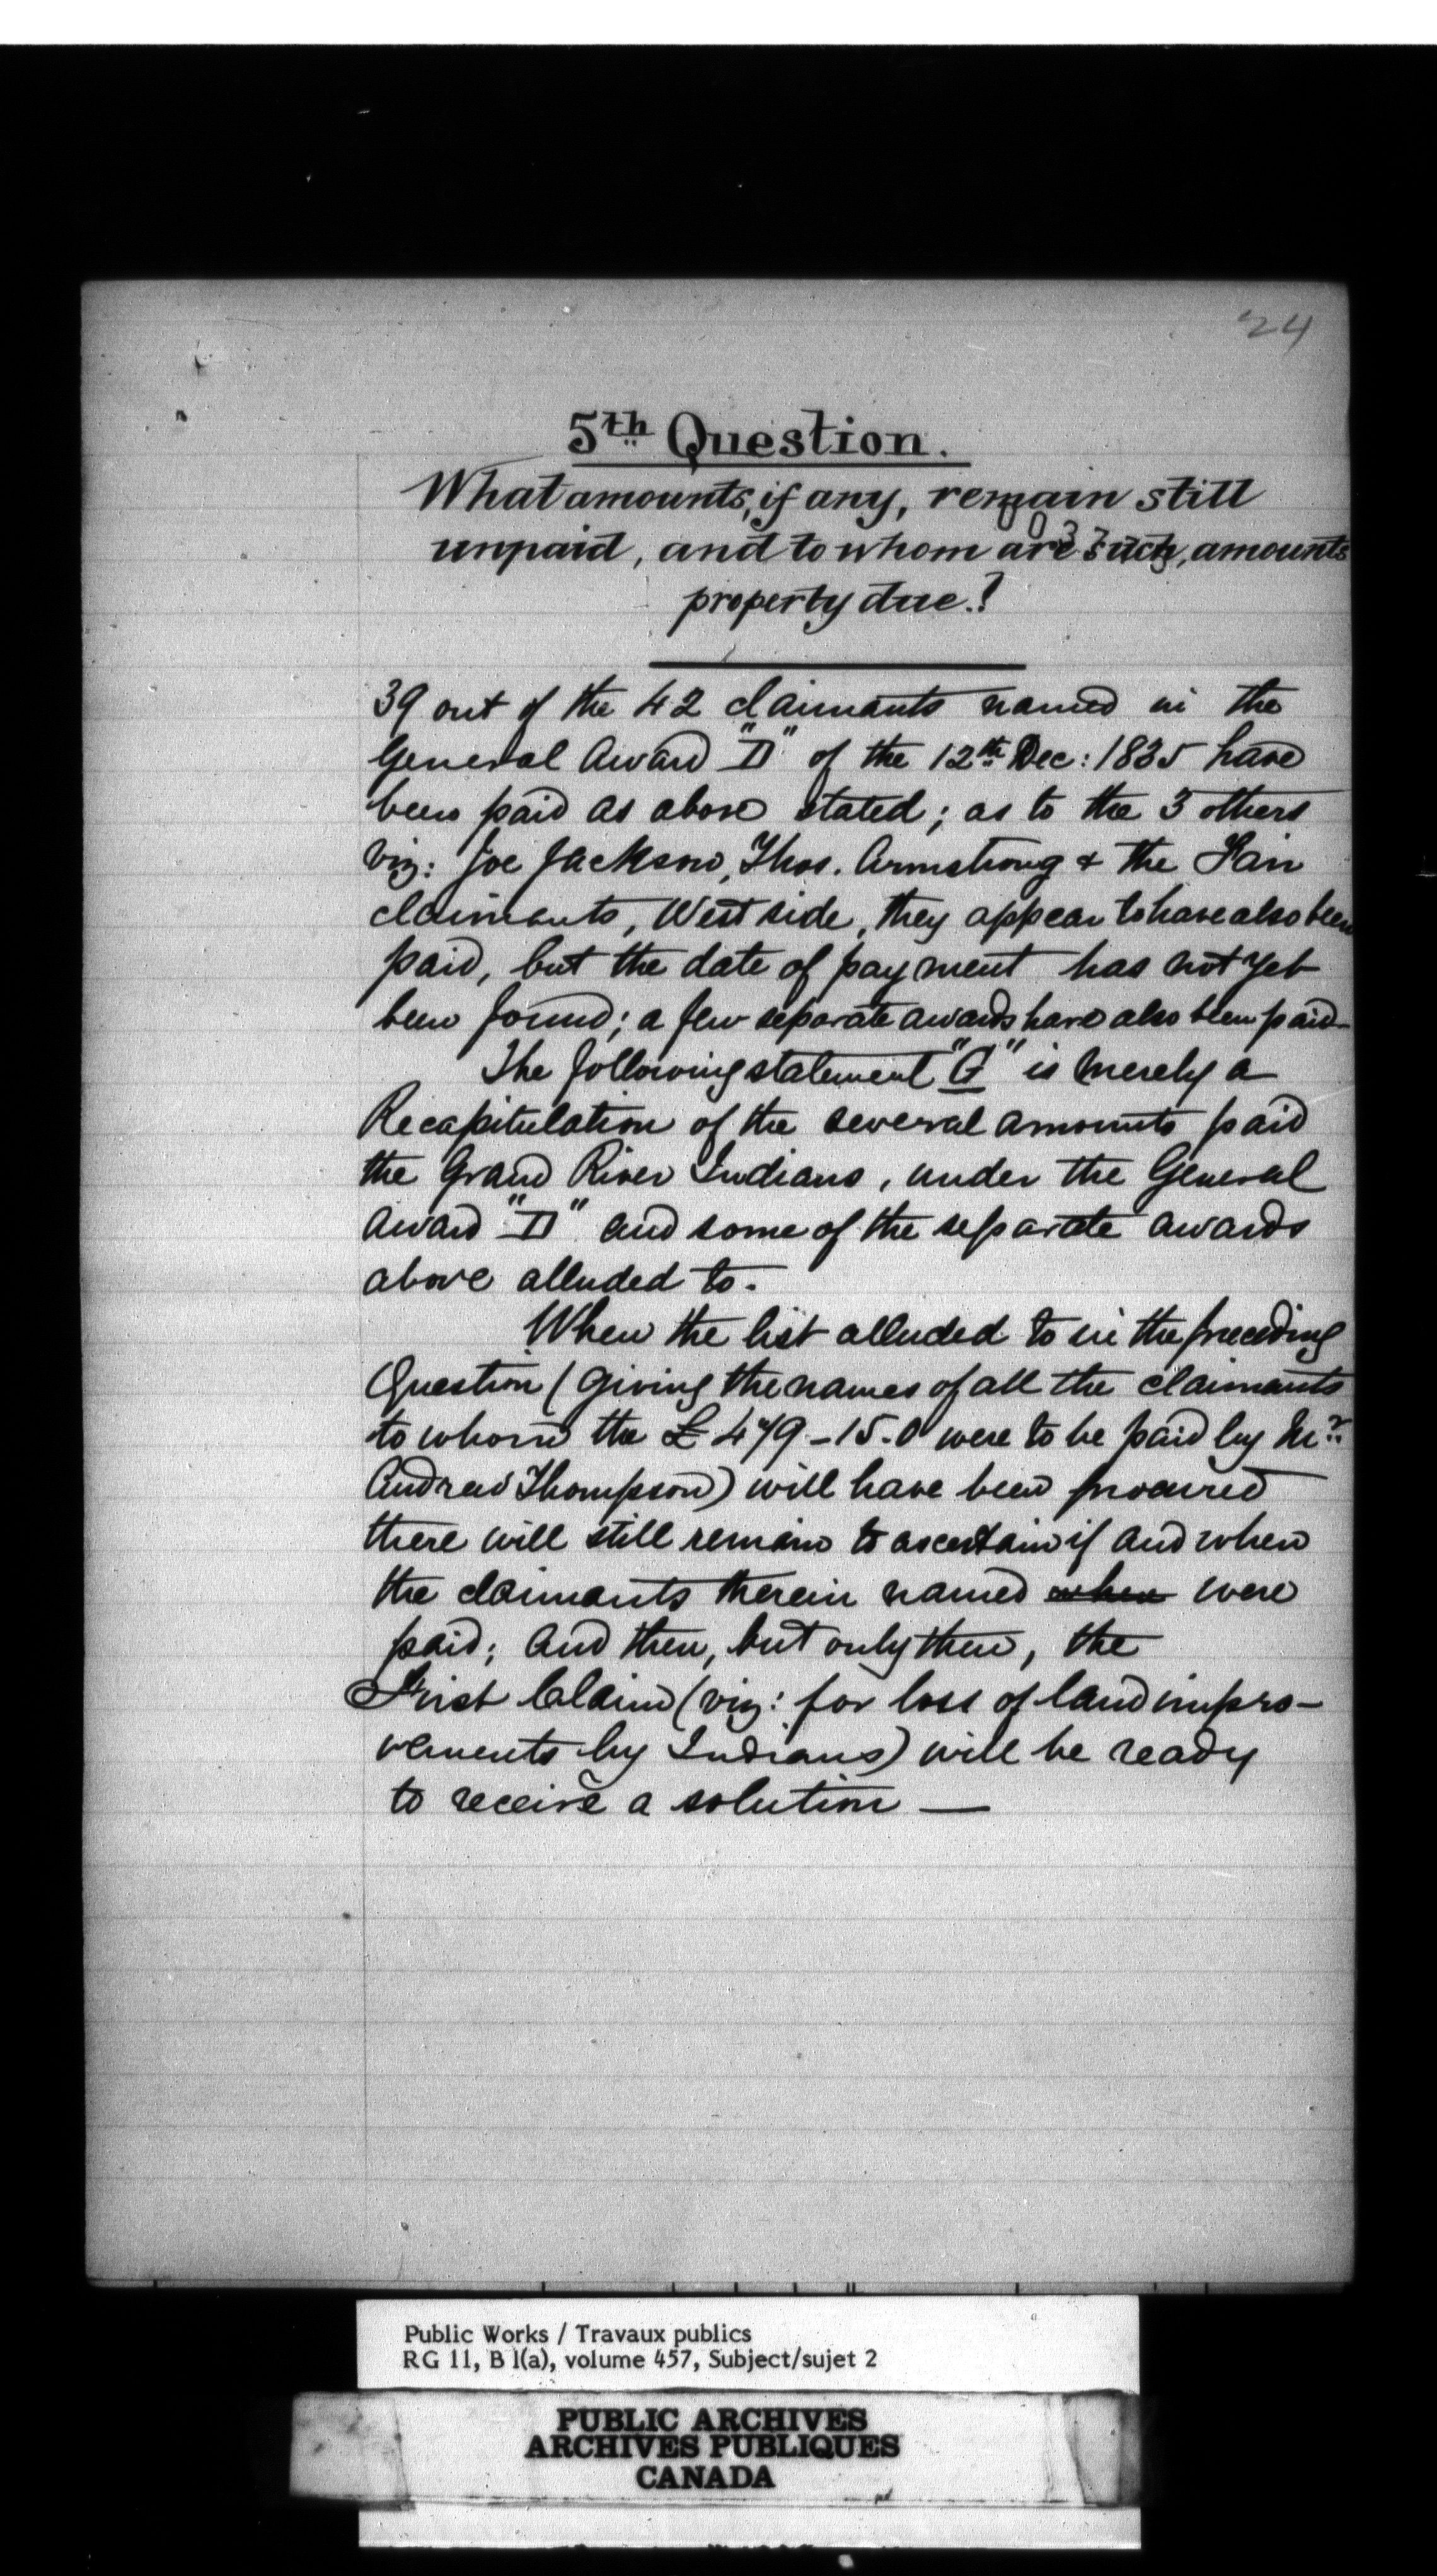 24
5th Question.
What amounts, if any, remain still
unpaid, and to whom are such, amounts
property due.?
39 out of the 42 claimants named in the
General Award "D" of the 12th Dec: 1835 have
been paid as above stated; as to the 3 others
viz: Joe Jackson, Thos. Armstrong & the
claimants, West side, they appear to have also been
paid, but the date of payment has not yet
been found; a few separate awards have also been paid-
The following statement "G" is merely a
Recapitulation of the several amounts paid
the Grand River Indians, under the General
Award "D" and some of the separate awards
above alluded to.
When the list alluded to in the preceding
Question (giving the names of all the claimants
to whom the £479-15.0 were to be paid by Mr
Andrew Thompson) will have been procured
there will still remain to ascertain if and when
the claimants therein named when were
paid; and then, but only then, the
First Claim (viz: for loss of land impro-
vements by Indians) will be ready
to receive a solution —
Public Works / Travaux publics
RG 11, B 1(a), volume 457, Subject/sujet 2
PUBLIC ARCHIVES
ARCHIVES PUBLIQUES
CANADA